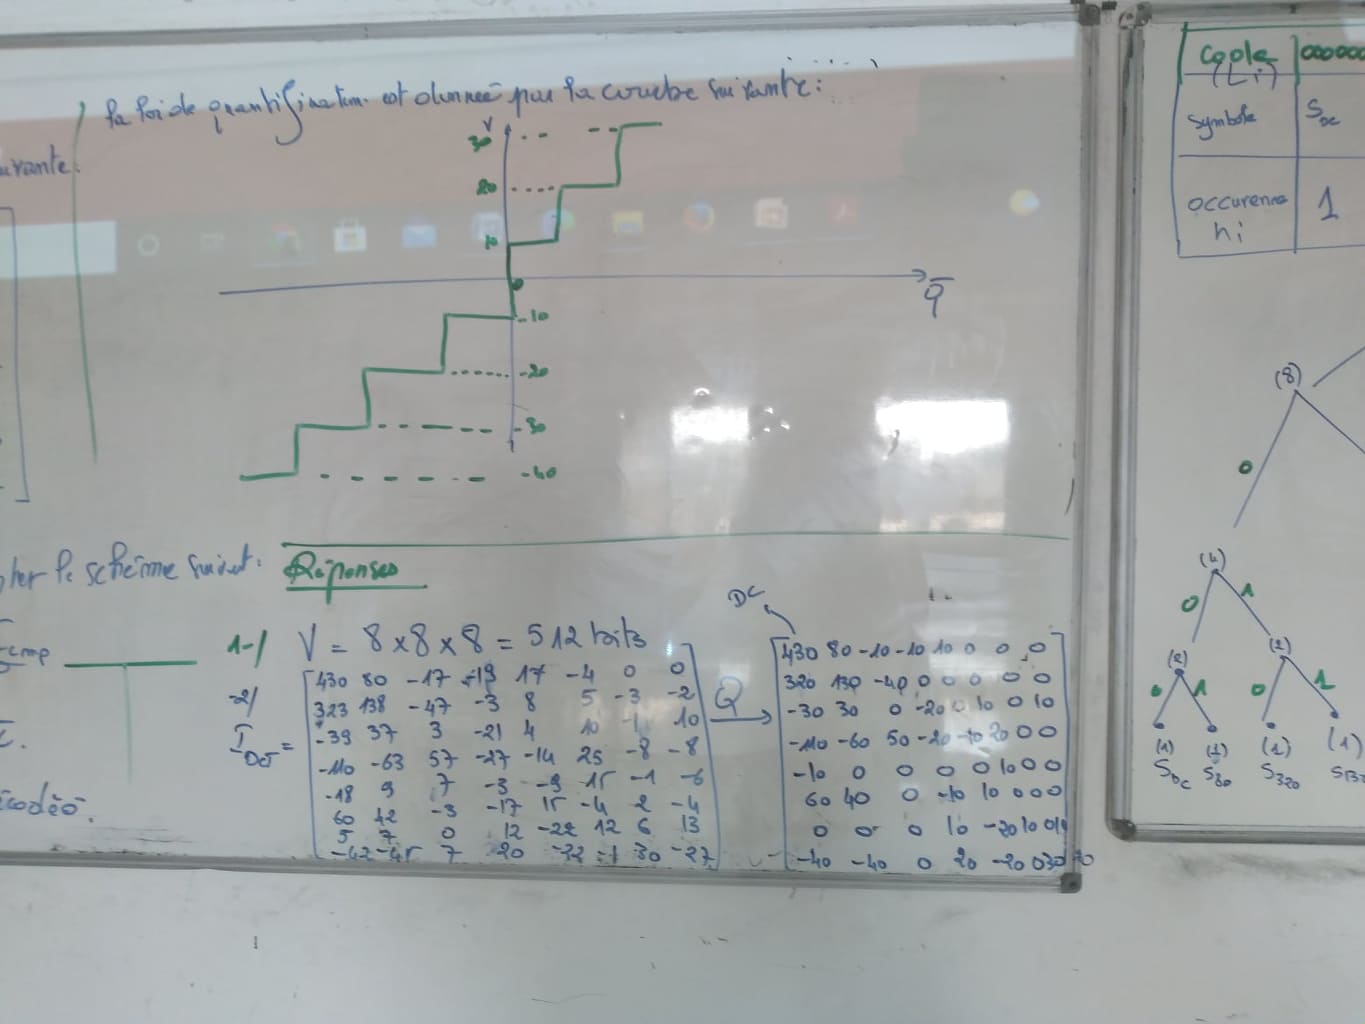 la loi de quantification est donnée par la courbe suivante:
uivante:
V
30
20
10
0
-10
-20
-30
-40
q
le schéme suivant:
Réponses
1-/ V = 8 x 8 x 8 = 512 bits
-2/
I DCT =
430 80 -17 -19 17 -4 0 0
323 138 -47 -3 8 5 -3 -2
-39 37 3 -21 4 10 -1 10
-110 -63 57 -27 -14 25 -8 -8
-18 9 7 -3 -9 15 -1 -6
60 42 -3 -17 15 -4 2 -4
5 7 0 12 -22 12 6 13
-42 -45 7 20 -22 -1 30 -27
Q
DC
430 80 -10 -10 10 0 0 0
320 130 -40 0 0 0 0 0
-30 30 0 -20 0 10 0 10
-110 -60 50 -20 -10 20 0 0
-10 0 0 0 0 10 0 0
60 40 0 -10 10 0 0 0
0 0 0 10 -20 10 0 10
-40 -40 0 20 -20 0 30
Code (Li)
Symbole
SDC
occurence
ni
1
(8)
0
(4)
0 1
(2) (2)
0 1 0 1
(1) (1) (1) (1)
SDC S80 S320 S13